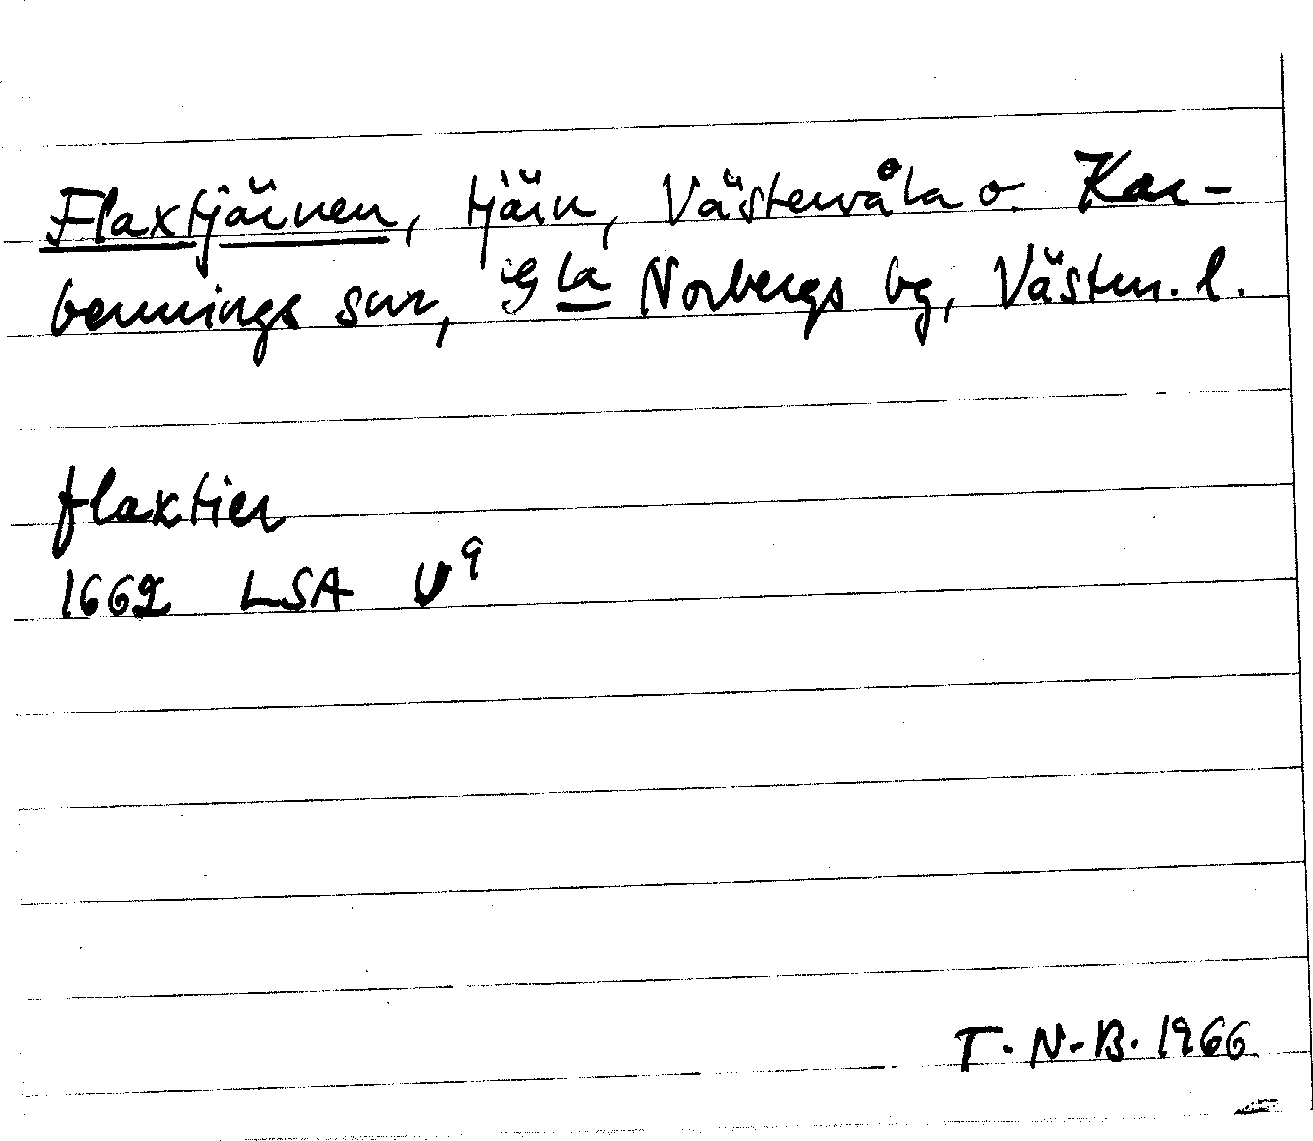 Flaxtjärnen, tjärn, Västervåla o. Kar-
bennings snr, Gla Norbergs bg, Västm. l.
flaxtier
1662 LSA U⁹
T. N-B. 1966